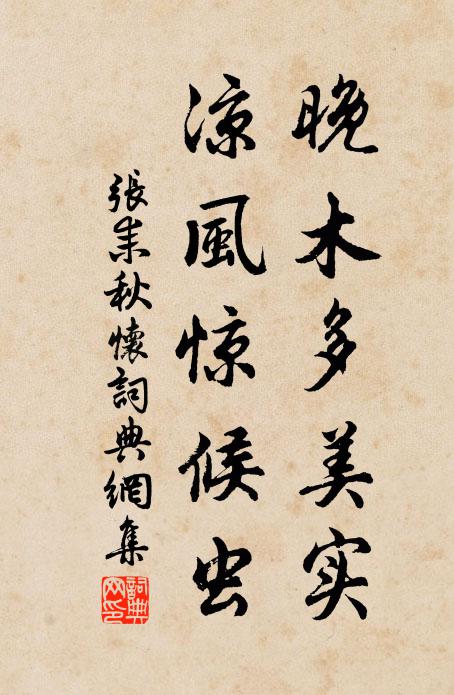 晚木多美实
凉风惊候虫
張耒秋懷詞典網集
詞典网印